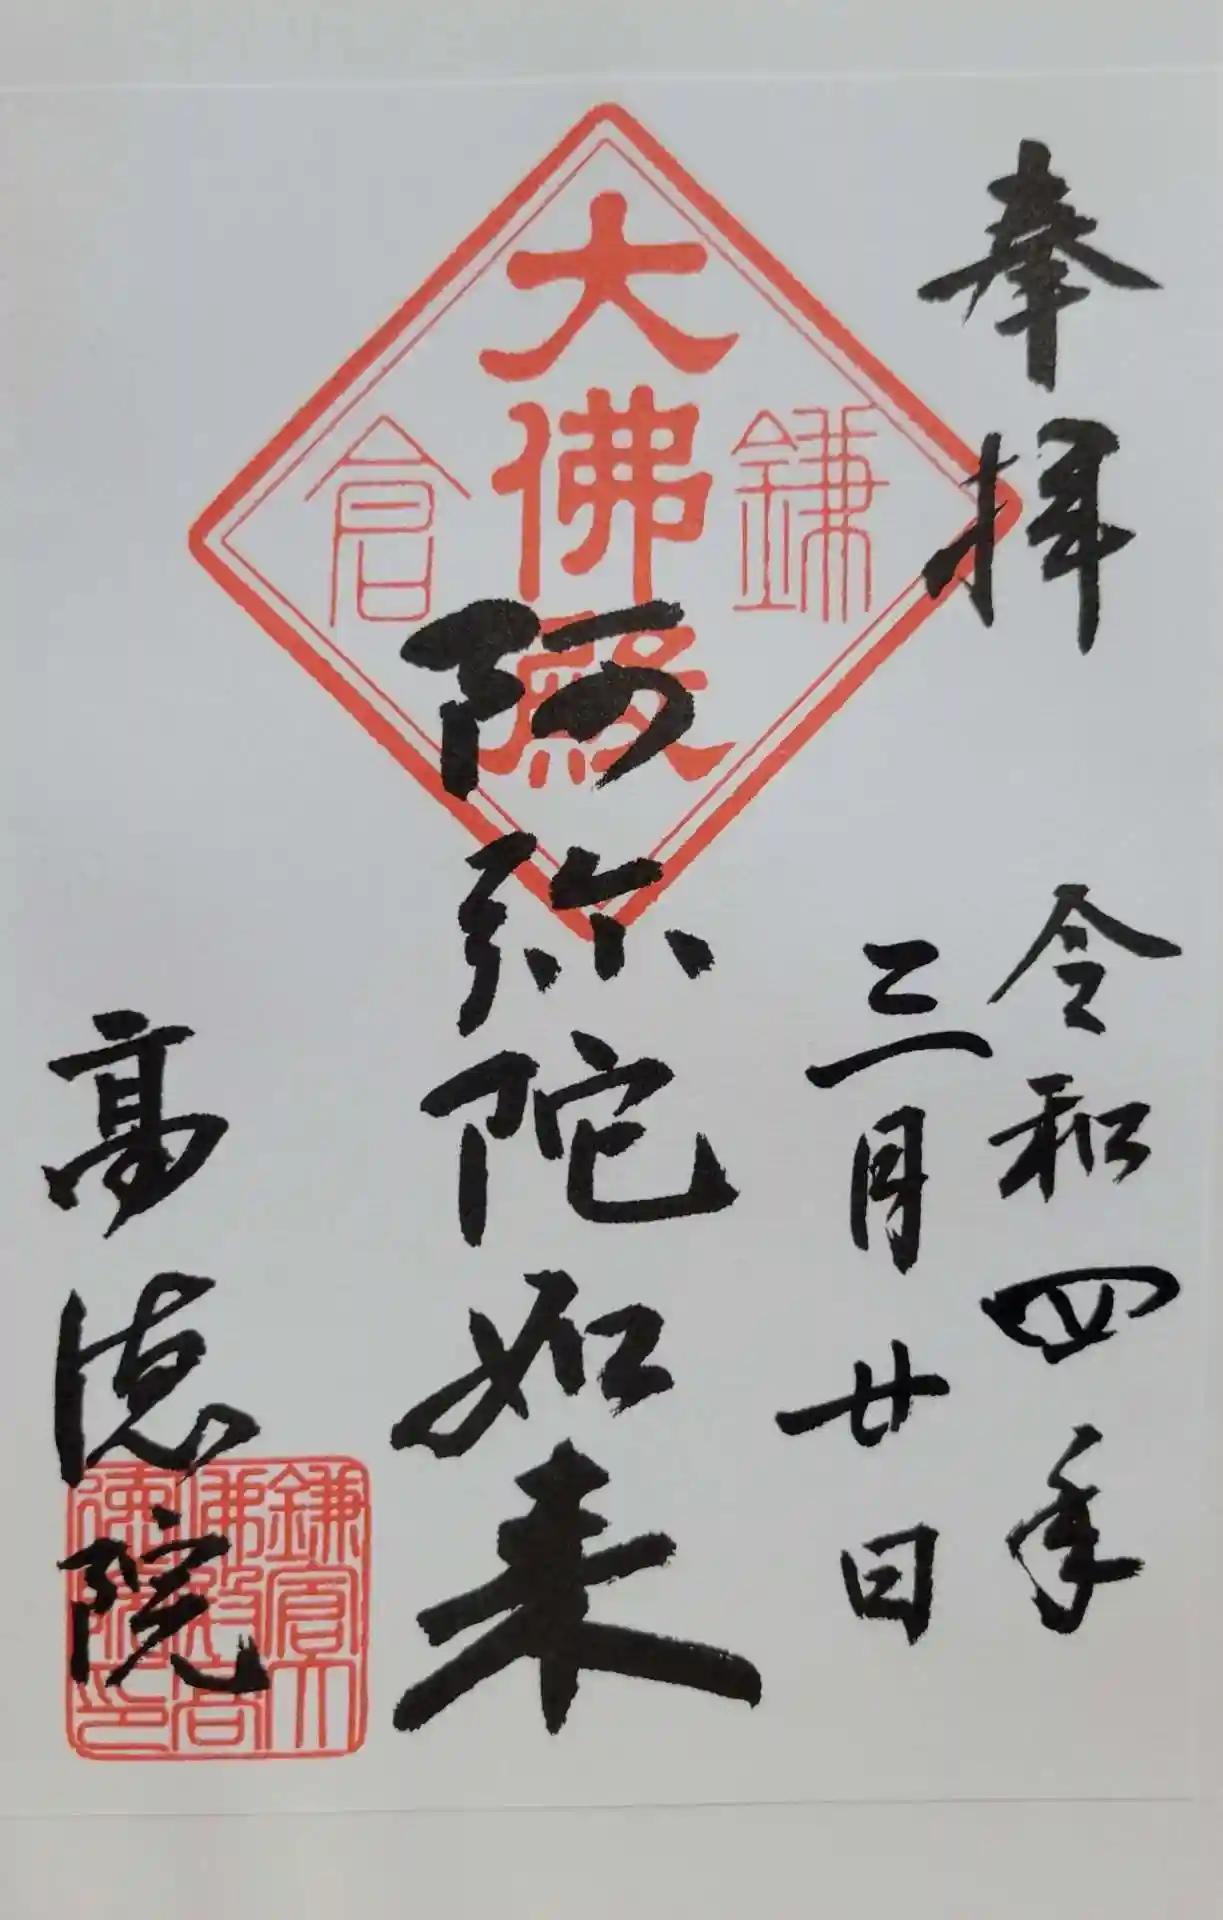 奉拝
令和四年
三月廿日
鎌倉
大佛殿
阿弥陀如来
高徳院
鎌倉大
佛殿高
徳院印